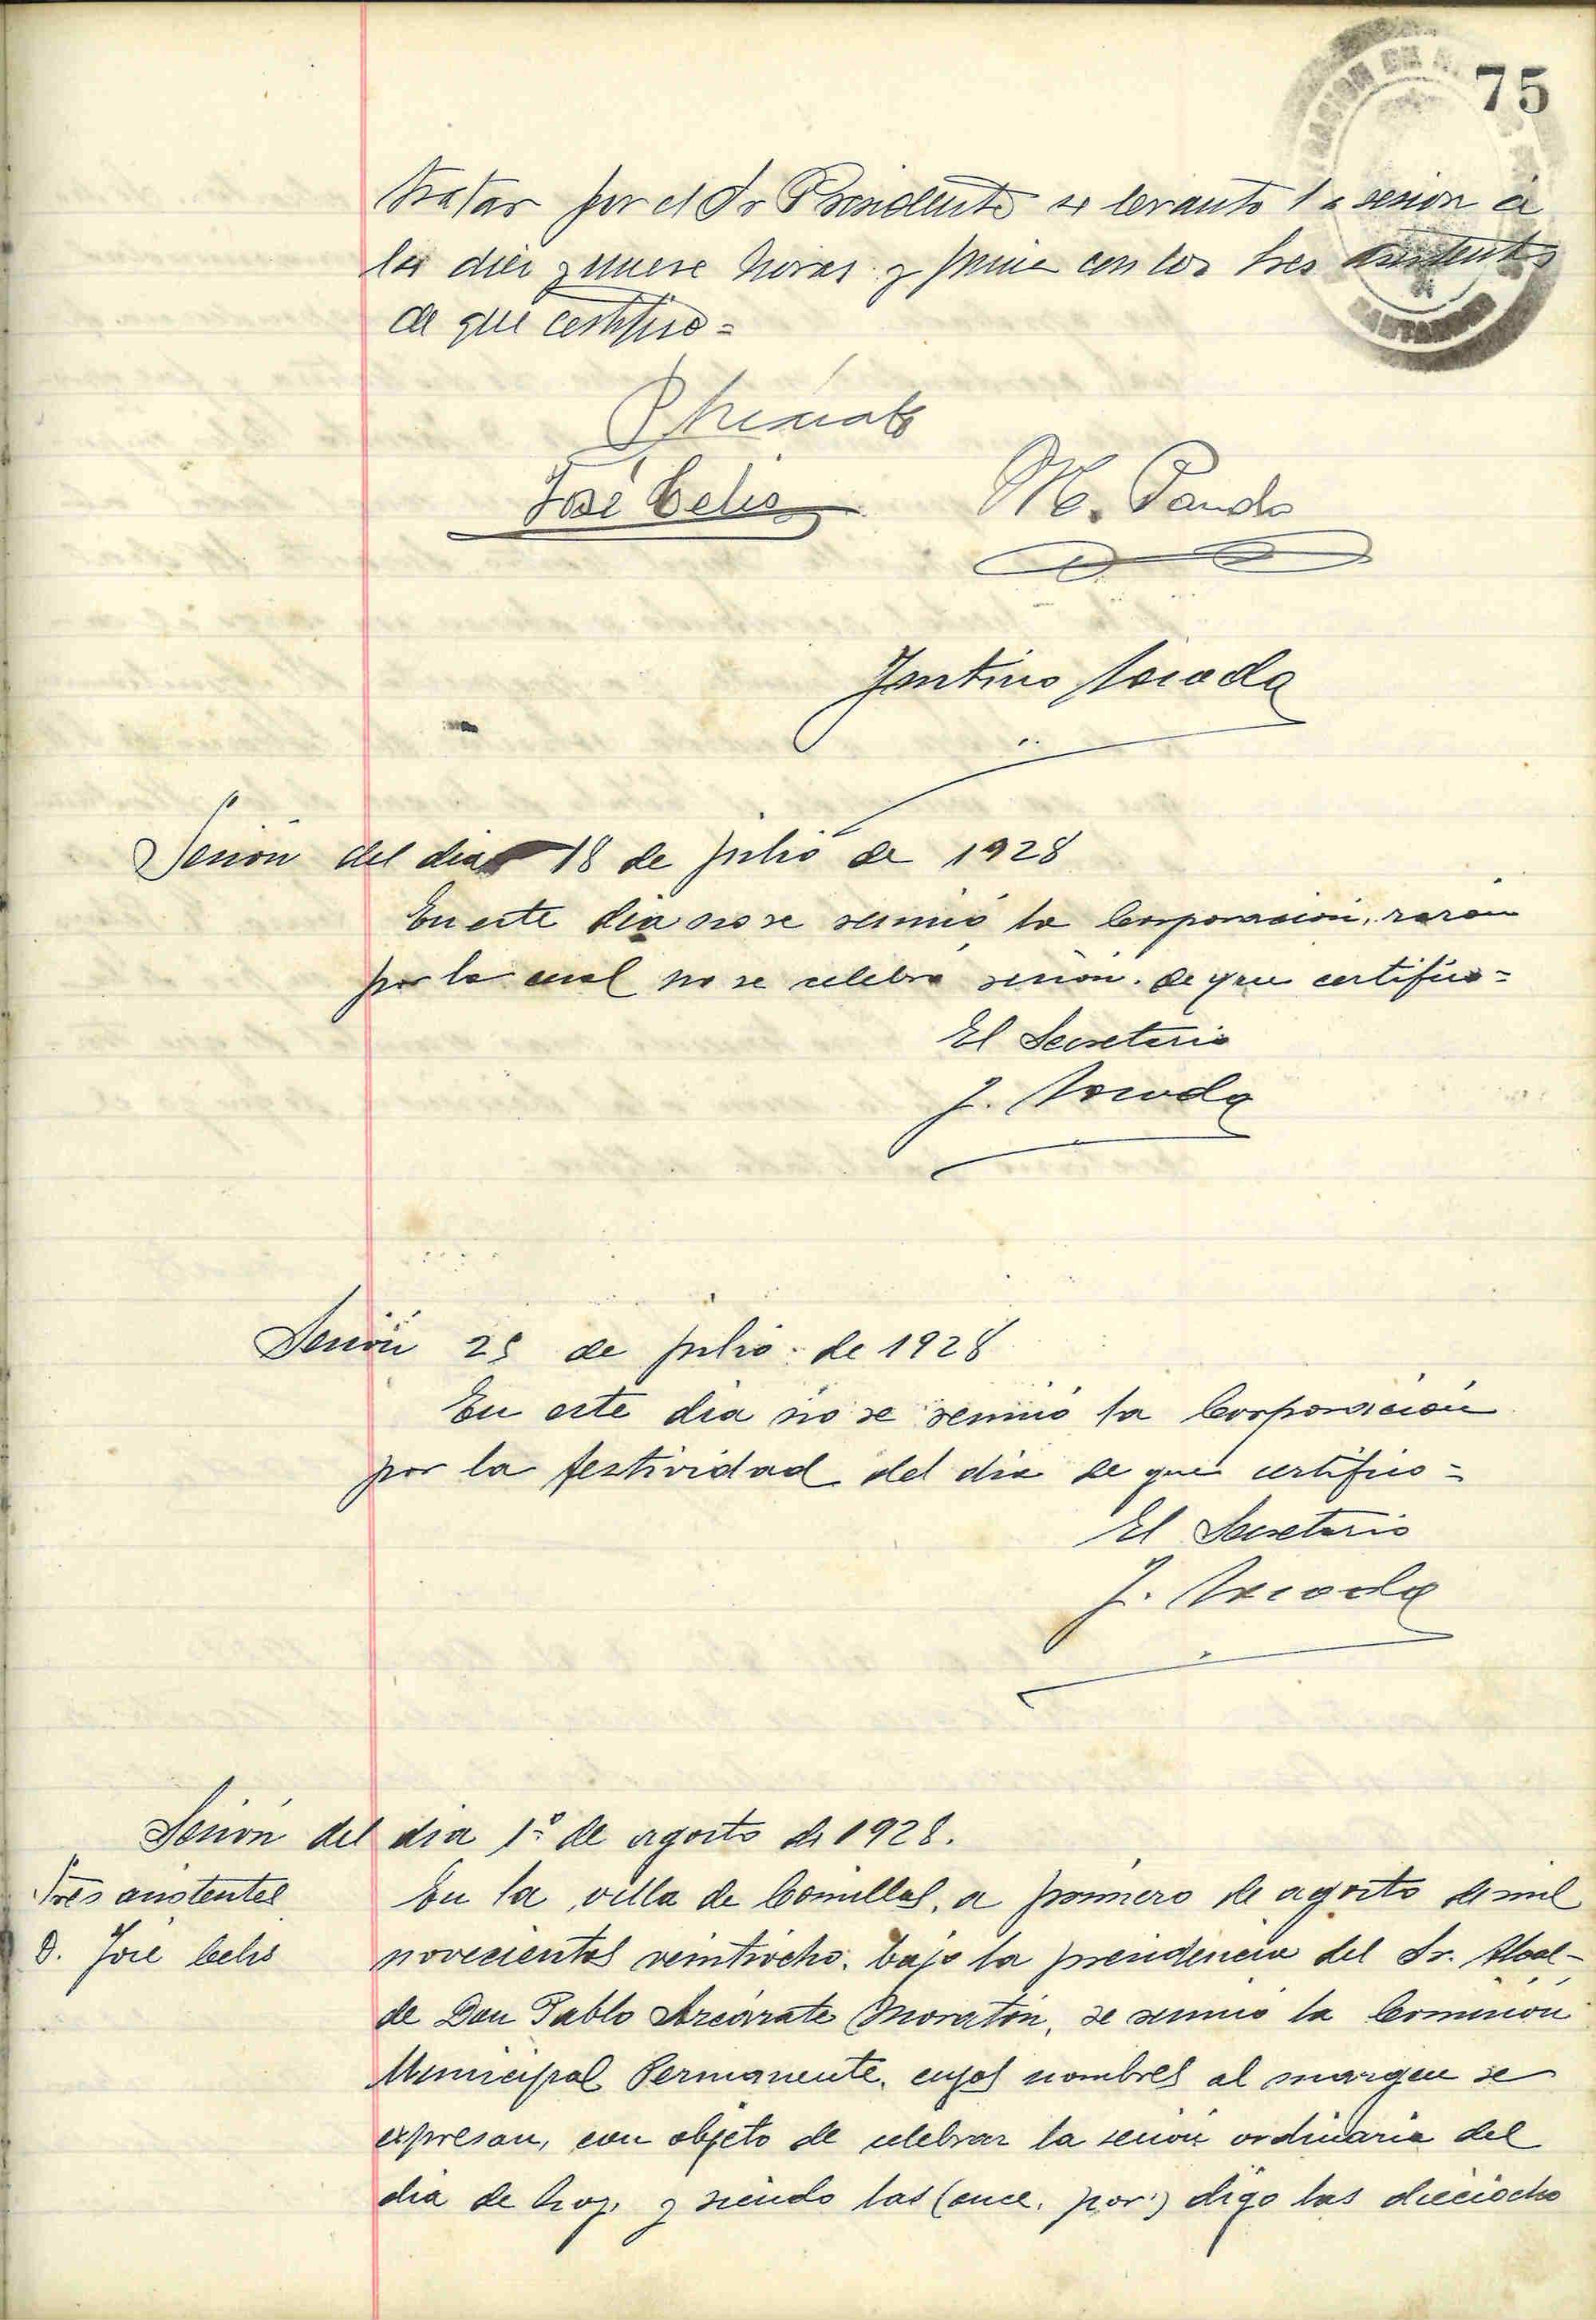 75
tratar por el Sr Presidente se levanto la sesion a
las diez y nueve horas y firma con los Sres asistentes
de que certifico=
José Celis
M. Pando
Sesión del dia 18 de julio de 1928
En este dia no se reunió la Corporación, razón
por la cual no se celebró sesión. de que certifico=
El Secretario
Sesión 25 de julio de 1928
En este dia no se reunió la Corporación
por la festividad del dia de que certifico=
El Secretario
Sesión del dia 1º de agosto de 1928.
Sres asistentes
D. José Celis
En la villa de Comillas, a primero de agosto de mil
novecientos veintiocho. bajo la presidencia del Sr. Alcal-
de Don Pablo Azcárate Moratón, se reunió la Comisión
Municipal Permanente, cuyos nombres al margen se
expresan, con objeto de celebrar la sesión ordinaria del
dia de hoy, y siendo las (once, por) digo las dieciocho